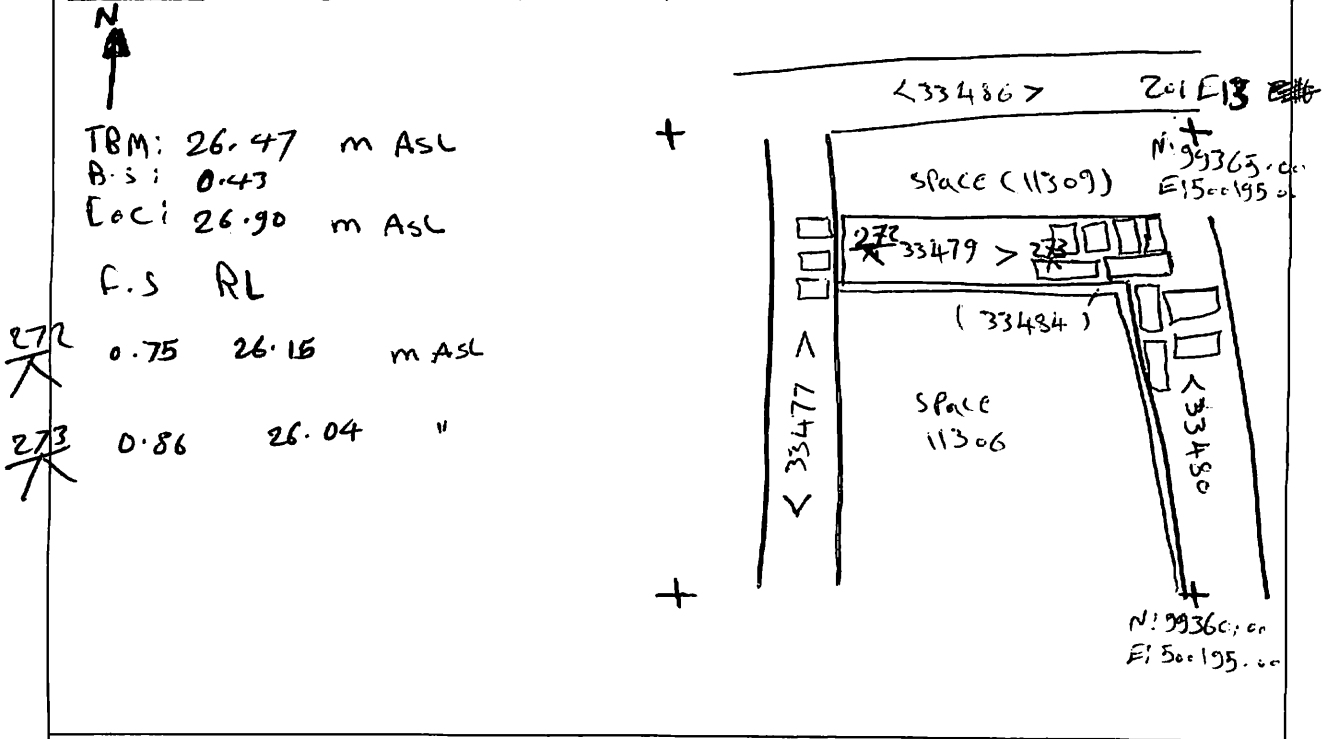 N
TBM: 26.47 m ASL
B.S: 0.43
LOC: 26.90 m ASL
F.S RL
272 0.75 26.15 m ASL
273 0.86 26.04 "
<33486> 201 E13
N: 99365.00
E: 500195.0
SPACE (11309)
272 33479 > 273
(33484)
<33477>
SPACE
11306
<33480
N: 99360.00
E: 500195.00